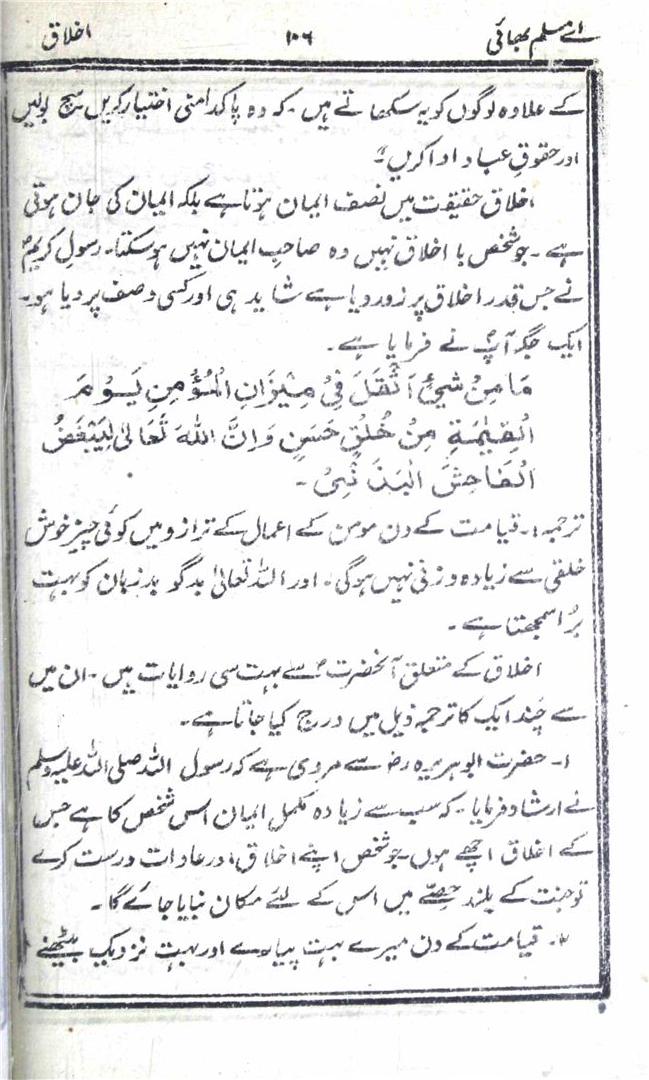 اے مسلم بھائی ۱۰۶ اخلاق
کے علاوہ لوگوں کو یہ سکھاتے ہیں۔ کہ وہ پاکدامنی اختیار کریں سچ بولیں
اور حقوق عباد ادا کریں"۔
اخلاق حقیقت میں نصف ایمان ہوتا ہے بلکہ ایمان کی جان ہوتی
ہے۔ جو شخص با اخلاق نہیں وہ صاحب ایمان نہیں ہوسکتا۔ رسول کریمؐ
نے جس قدر اخلاق پر زور دیا ہے شاید ہی اور کسی وصف پر دیا ہو۔
ایک جگہ آپؐ نے فرمایا ہے۔
مَا مِنْ شَيْئٍ اَثْقَلَ فِيْ مِيْزَانِ الْمُؤْمِنِ يَوْمَ
الْقِيٰمَةِ مِنْ خُلُقٍ حَسَنٍ وَاِنَّ اللّٰهَ تَعَالٰى لِيَبْغَضُ
الْفَاحِشَ الْبَذِئِيْ۔
ترجمہ:۔ قیامت کے دن مومن کے اعمال کے ترازو میں کوئی چیز خوش
خلقی سے زیادہ وزنی نہیں ہوگی۔ اور اللہ تعالیٰ بدگو بدزبان کو بہت
بُرا سمجھتا ہے۔
اخلاق کے متعلق آنحضرتؐ سے بہت سی روایات ہیں۔ ان میں
سے چند ایک کا ترجمہ ذیل میں درج کیا جاتا ہے۔
۱۔ حضرت ابوہریرہ رضؓ سے مروی ہے کہ رسول اللہ صلی اللہ علیہ وسلم
نے ارشاد فرمایا۔ کہ سب سے زیادہ مکمل ایمان اس شخص کا ہے جس
کے اخلاق اچھے ہوں۔ جو شخص اپنے اخلاق اور عادات درست کرے
تو جنت کے بلند حصّے میں اس کے لئے مکان بنایا جائے گا۔
۲۔ قیامت کے دن میرے بہت پیارے اور بہت نزدیک بیٹھنے